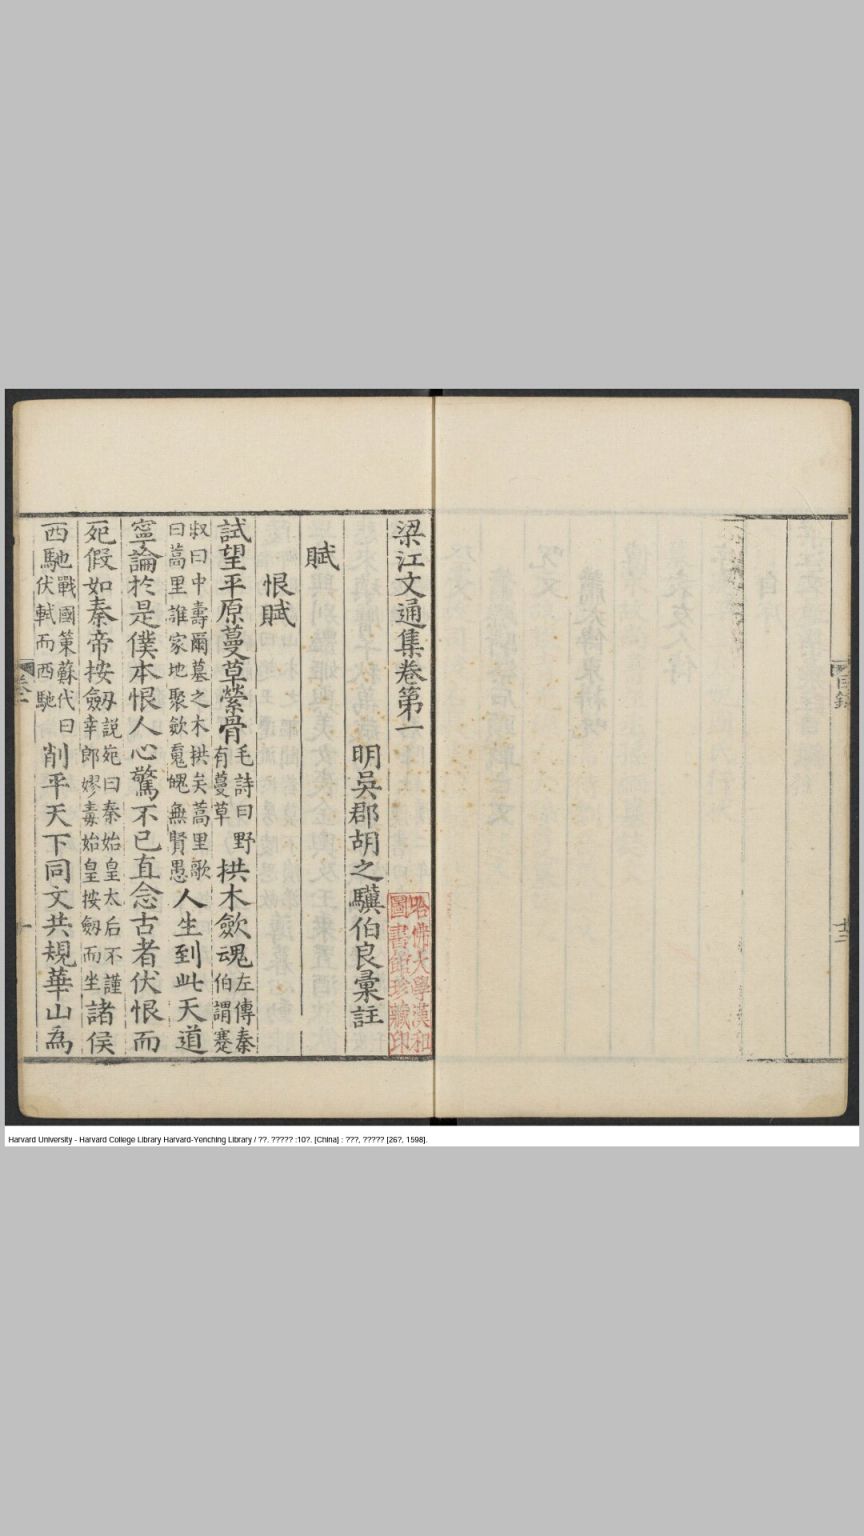 目錄
廿三
梁江文通集卷第一
哈佛大學漢和
圖書館珍藏印
明吳郡胡之驥伯良彙註
賦
恨賦
試望平原蔓草縈骨毛詩曰野有蔓草拱木歛魂左傳秦伯謂蹇
叔曰中壽爾墓之木拱矣蒿里歌曰蒿里誰家地聚歛䰟魄無賢愚人生到此天道
寧論於是僕本恨人心驚不已直念古者伏恨而
死假如秦帝按劒說苑曰秦始皇太后不謹幸郎嫪毒始皇按劒而坐諸侯
西馳戰國策蘇代曰伏軾而西馳削平天下同文共規華山為
卷一
一
Harvard University - Harvard College Library Harvard-Yenching Library / ??. ????? :10?. [China] : ???, ????? [26?, 1598].